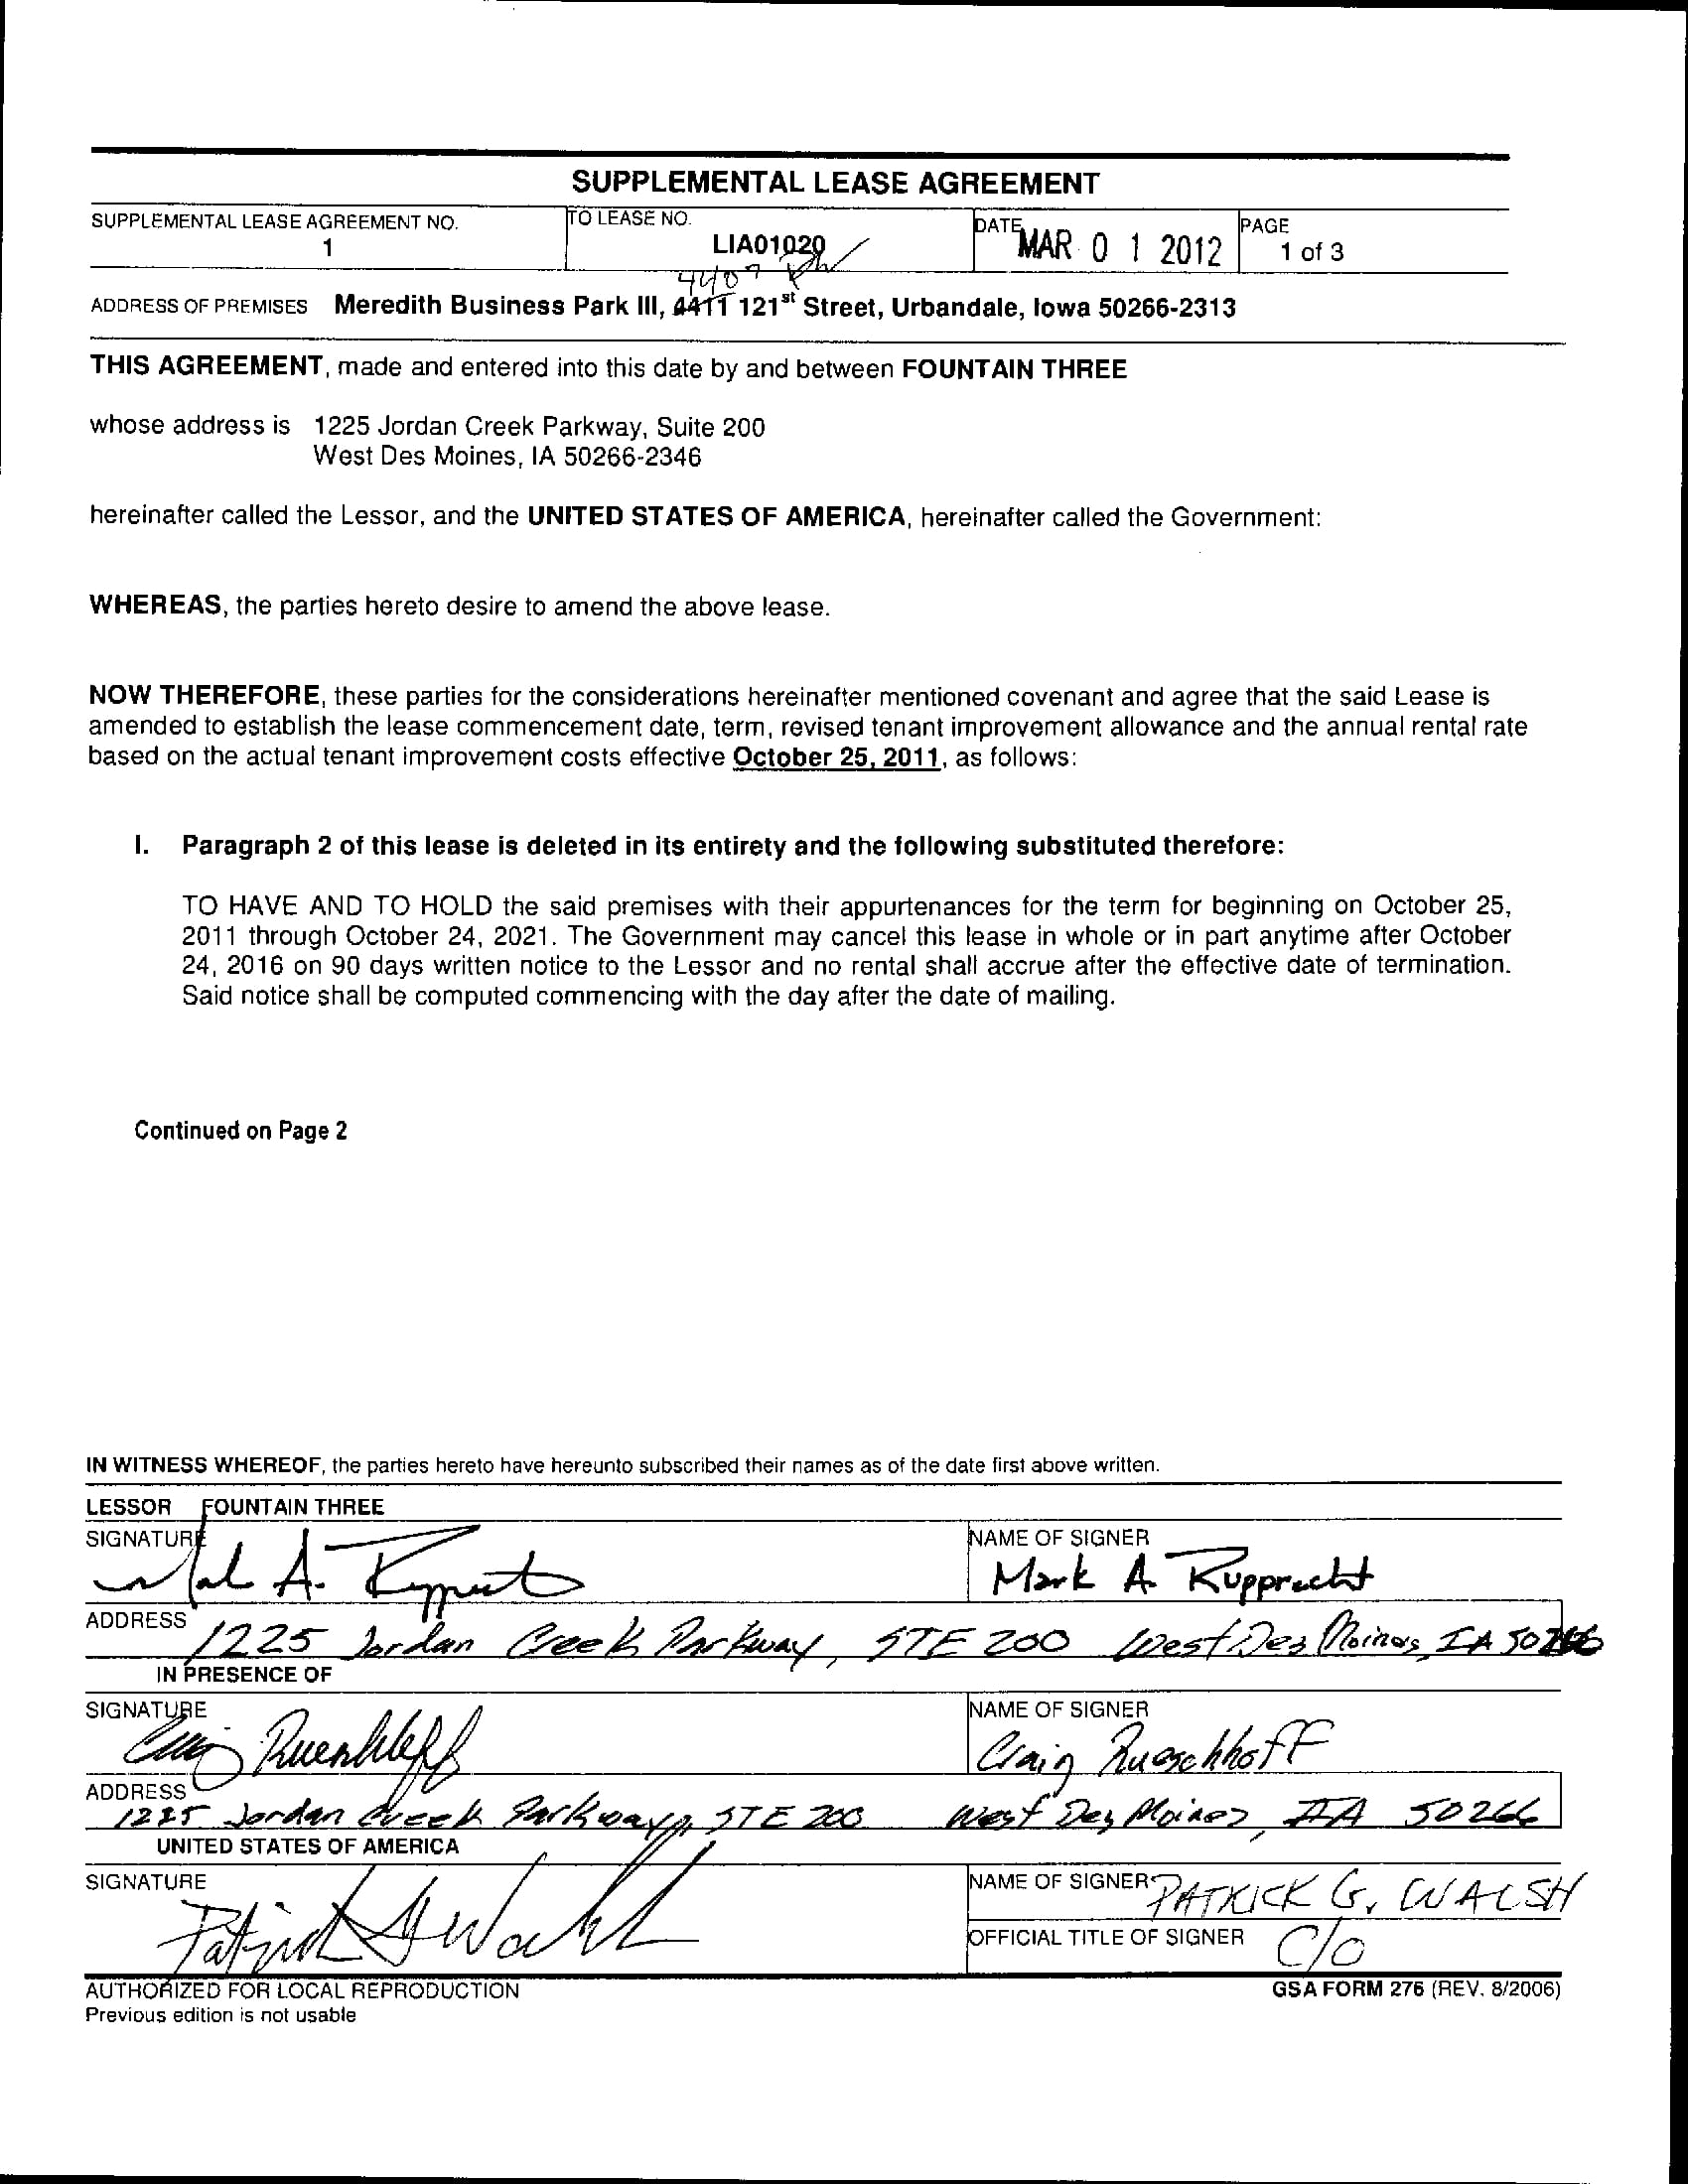 SUPPLEMENTAL LEASE AGREEMENT
SUPPLEMENTAL LEASE AGREEMENT NO. TO LEASE NO. DATE PAGE
1 LIA01020 MAR 0 1 2012 1 of 3
4407
ADDRESS OF PREMISES Meredith Business Park III, 4411 121st Street, Urbandale, Iowa 50266-2313
THIS AGREEMENT, made and entered into this date by and between FOUNTAIN THREE
whose address is 1225 Jordan Creek Parkway, Suite 200
West Des Moines, IA 50266-2346
hereinafter called the Lessor, and the UNITED STATES OF AMERICA, hereinafter called the Government:
WHEREAS, the parties hereto desire to amend the above lease.
NOW THEREFORE, these parties for the considerations hereinafter mentioned covenant and agree that the said Lease is
amended to establish the lease commencement date, term, revised tenant improvement allowance and the annual rental rate
based on the actual tenant improvement costs effective October 25, 2011, as follows:
I. Paragraph 2 of this lease is deleted in its entirety and the following substituted therefore:
TO HAVE AND TO HOLD the said premises with their appurtenances for the term for beginning on October 25,
2011 through October 24, 2021. The Government may cancel this lease in whole or in part anytime after October
24, 2016 on 90 days written notice to the Lessor and no rental shall accrue after the effective date of termination.
Said notice shall be computed commencing with the day after the date of mailing.
Continued on Page 2
IN WITNESS WHEREOF, the parties hereto have hereunto subscribed their names as of the date first above written.
LESSOR FOUNTAIN THREE
SIGNATURE NAME OF SIGNER
Mark A. Rupprecht
ADDRESS
1225 Jordan Creek Parkway, STE 200 West Des Moines, IA 50266
IN PRESENCE OF
SIGNATURE NAME OF SIGNER
Craig Rueschhoff
ADDRESS
1225 Jordan Creek Parkway, STE 200 West Des Moines, IA 50266
UNITED STATES OF AMERICA
SIGNATURE NAME OF SIGNER PATRICK G. WALSH
OFFICIAL TITLE OF SIGNER C/O
AUTHORIZED FOR LOCAL REPRODUCTION GSA FORM 276 (REV. 8/2006)
Previous edition is not usable